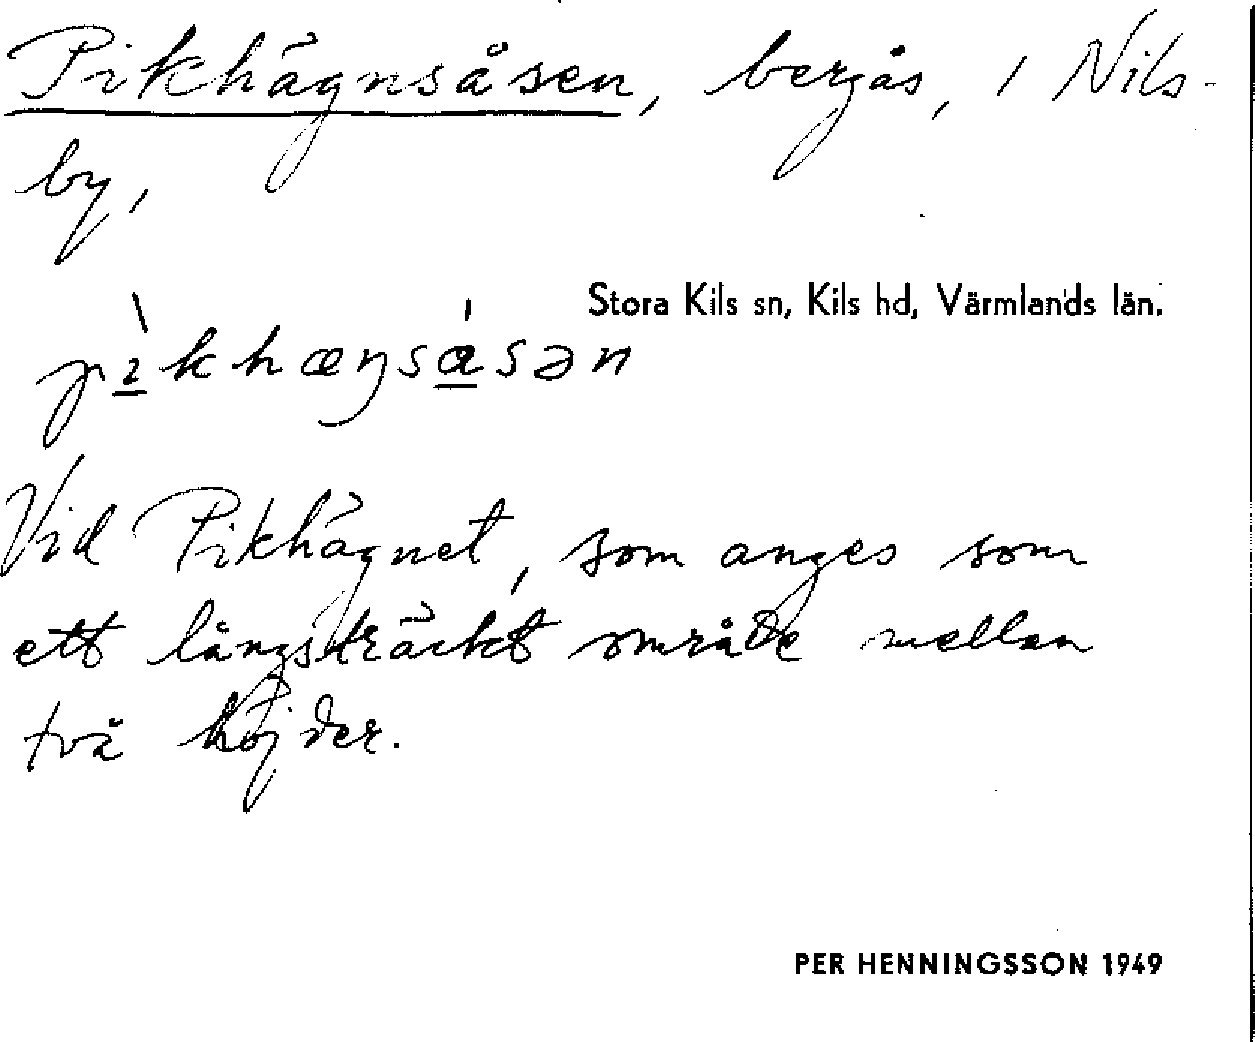 Pikhägnsåsen, bergås, i Nils-
by,
Stora Kils sn, Kils hd, Värmlands län.
pìkhæŋsásən
Vid Pikhägnet, som anges som
ett långsträckt område mellan
två höjder.
PER HENNINGSSON 1949